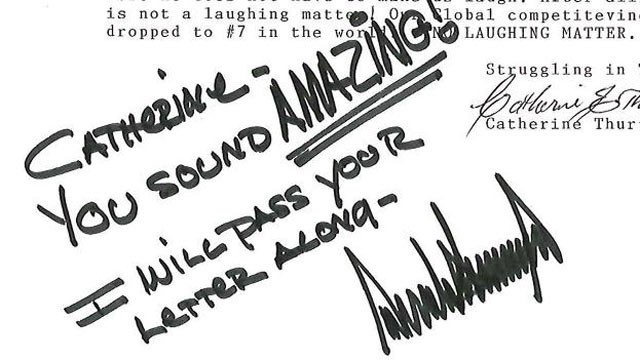 is not a laughing matter Global competitevin
dropped to #7 in the NO LAUGHING MATTER.
Struggling in
Catherine
Catherine Thur
CATHERINE -
YOU SOUND AMAZING!
I WILL PASS YOUR
LETTER ALONG -